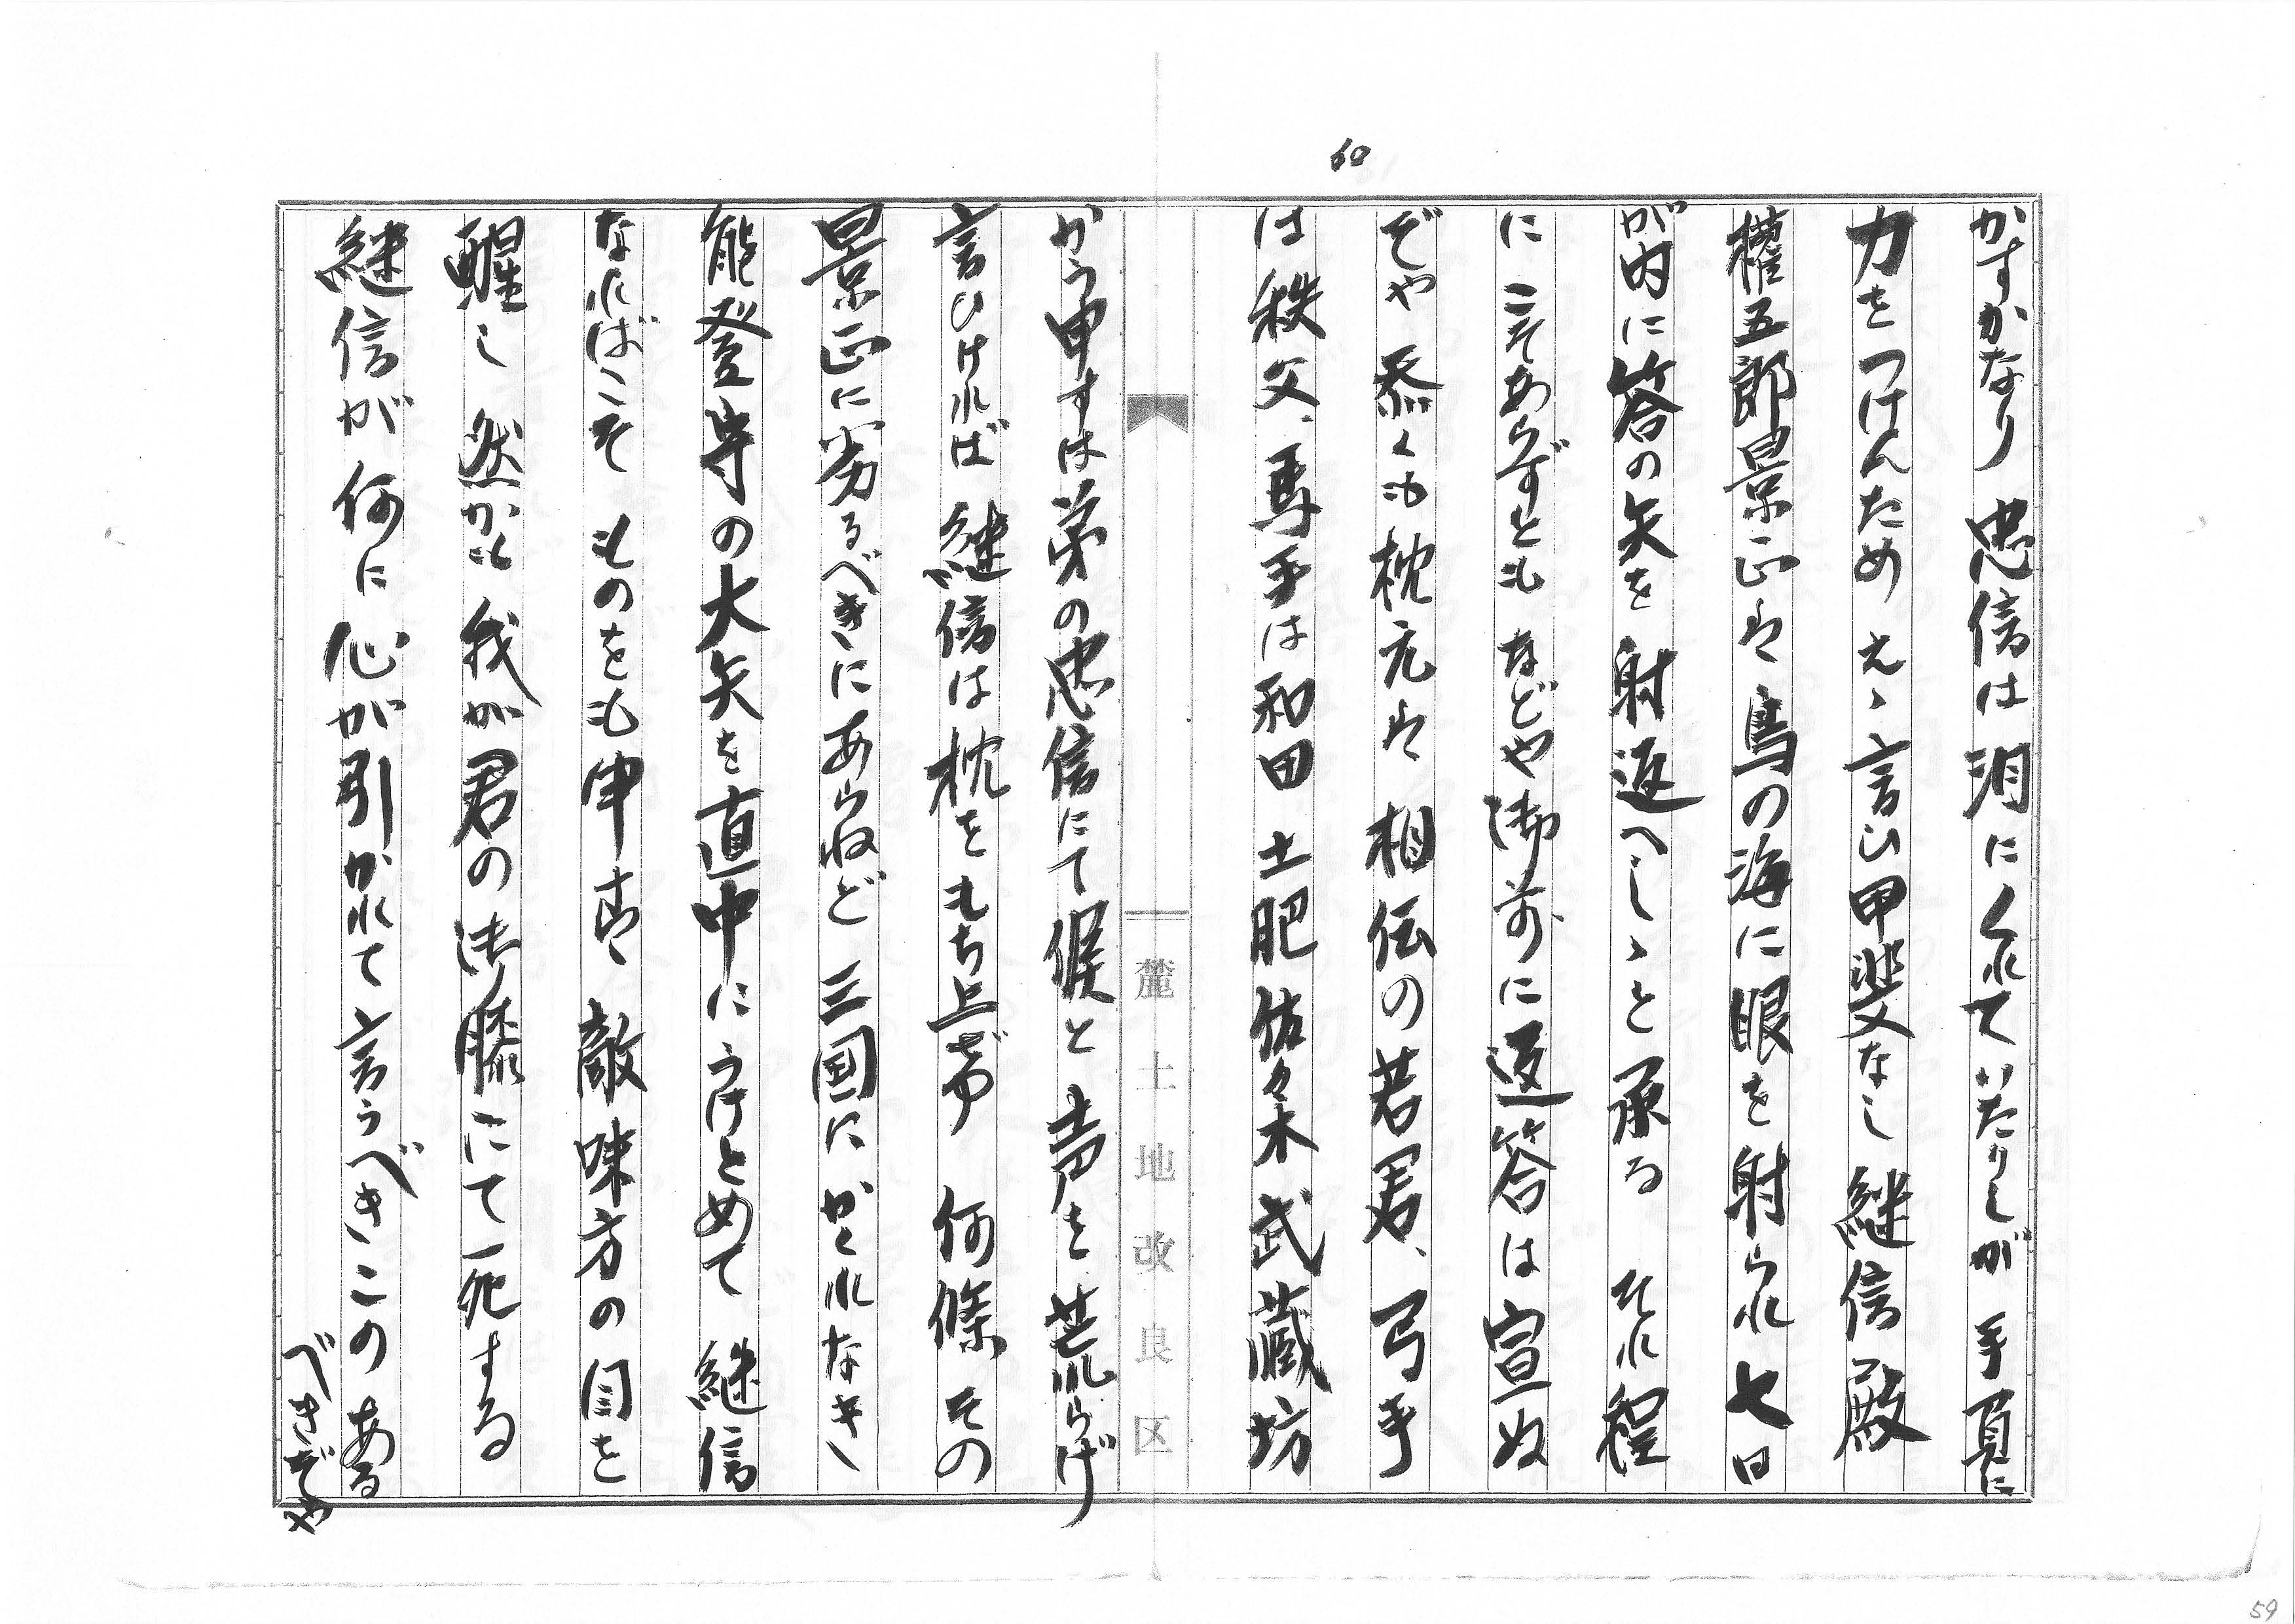 60
かすかなり 忠信は泪にくれていたりしが 手負に
力をつけんため えゝ言ひ甲斐なし 継信殿
権五郎景正は 鳥の海に眼を射られ 七日
が内に答の矢を射返へしゝと承る それ程
にこそあらずとも などや御前に返答は宣ぬ
ぞや 忝くも枕元は 相伝の若君、弓手
は秩父、馬手は和田 土肥 佐々木 武蔵坊
かう申すは弟の忠信にて候と 声を荒らげ
言ひければ 継信は枕をもち上げ 何條 その
景正に劣るべきにあらねど 三国にかくれなき
能登守の大矢を直中にうけとめて 継信
なればこそ ものをも申す 敵味方の目を
醒し 然かも我が君の御膝にて死する
継信が 何に心が引かれて言うべきことのある
べきぞや
麓土地改良区
59